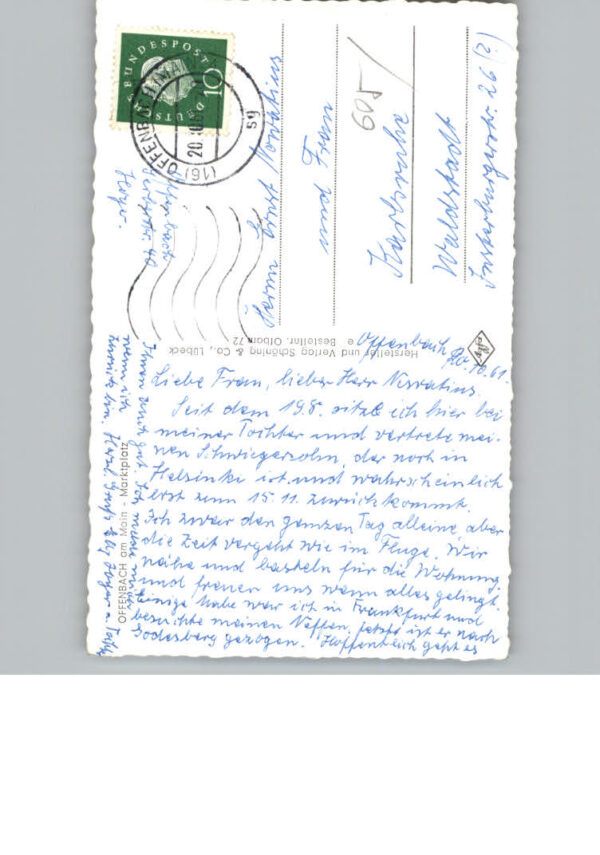 DEUTSCHE BUNDESPOST
10
(16) OFFENBACH (MAIN)
20.10.61
sg
Offenbach
Hoyer.
Herrn Ernst
und Frau
605/
Karlsruhe
Waldstadt
Insterburgerstr. 26 (?)
Hersteller und Verlag Schöning & Co., Lübeck
Bestellnr. Ofbam 72
OFFENBACH am Main - Marktplatz
Offenbach, 20.10.61.
Liebe Frau, lieber Herr
Seit dem 19.8. sitze ich hier bei
meiner Tochter und vertrete mei-
nen Schwiegersohn, der noch in
Helsinki ist und wahrscheinlich
erst zum 15.11. zurückkommt.
Ich zwar den ganzen Tag alleine, aber
die Zeit vergeht wie im Fluge. Wir
nähn und basteln für die Wohnung
und freuen uns wenn alles gelingt.
Einige Male war ich in Frankfurt und
besuchte meinen Neffen, jetzt ist er nach
Godesberg gezogen. Hoffentlich geht es
Ihnen auch gut. Ich
wenn ich
bin. Herzl.